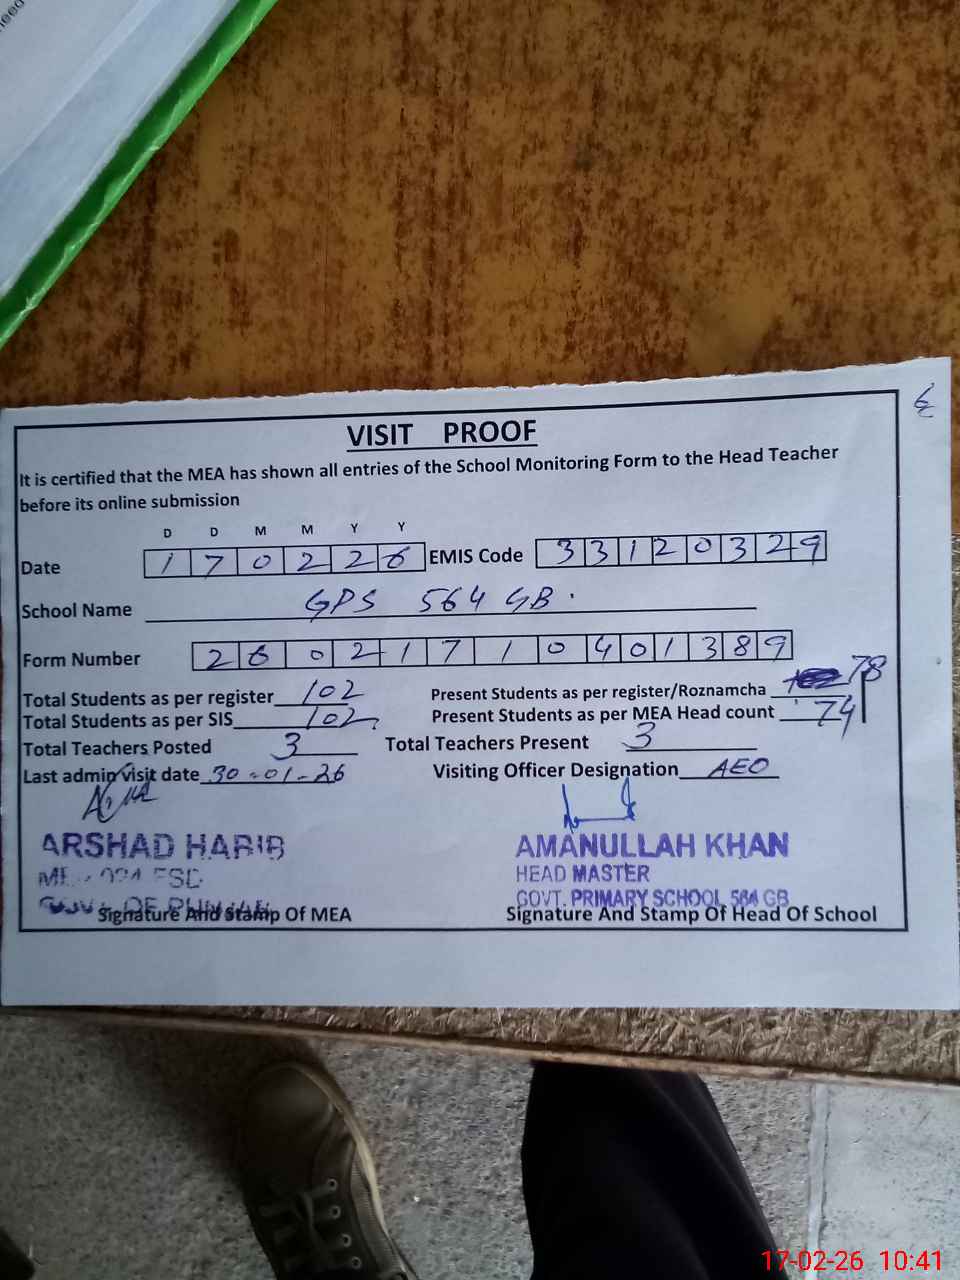 need
6
VISIT PROOF
It is certified that the MEA has shown all entries of the School Monitoring Form to the Head Teacher
before its online submission
D D M M Y Y
Date 1 7 0 2 2 6 EMIS Code 3 3 1 2 0 3 2 9
School Name GPS 564 GB.
Form Number 2 6 0 2 1 7 1 0 4 0 1 3 8 9
Total Students as per register 102 Present Students as per register/Roznamcha 78
Total Students as per SIS 102 Present Students as per MEA Head count 74
Total Teachers Posted 3 Total Teachers Present 3
Last admin visit date 30-01-26 Visiting Officer Designation AEO
ARSHAD HABIB AMANULLAH KHAN
FSD HEAD MASTER
GOVT. OF PUNJAB GOVT. PRIMARY SCHOOL 564 GB
Signature And Stamp Of MEA Signature And Stamp Of Head Of School
17-02-26 10:41